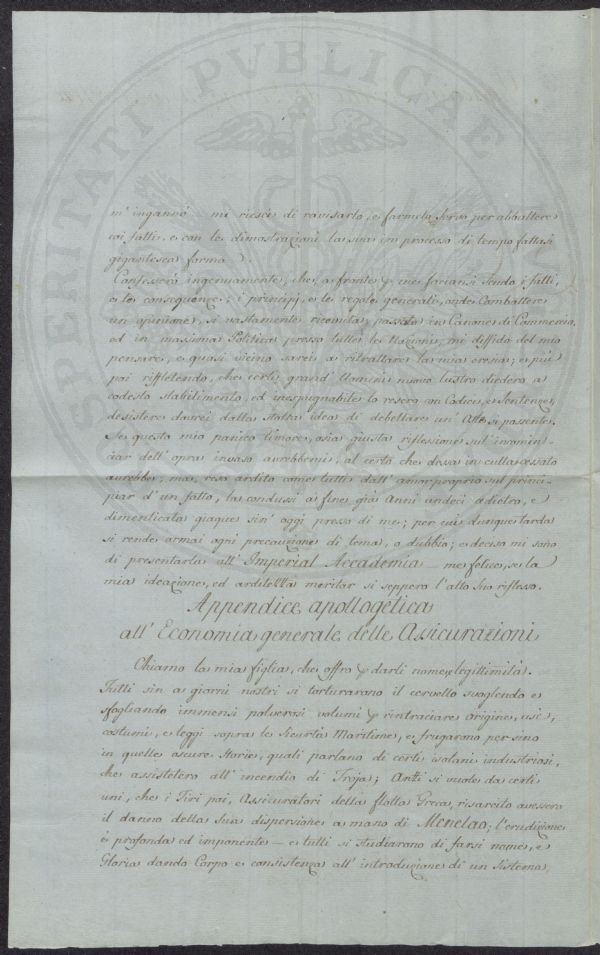 m'ingannò mi riesci di ravisarlo, e farmelo forse per abbattere
coi fatti, e con le dimostrazioni la sua in processo di tempo fattasi
gigantesca forma.
Confesserò ingenuamente, che a fronte me faciansi scudo i fatti,
e le conseguenze; i principj, e le regole generali, onde Combattere
un opinione, si vastamente ricevuta, passata in Canone di Commercio,
ed in massima Politica presso tutte le Nazioni, mi diffido del mio
pensare, e quasi vicino sarei a ritrattare la mia eresia; e più
poi riffletendo, che certi grand' Uomini nuovo lustro diedero a
codesto stabilimento, ed inespugnabile lo resero con Codici, e Sentenze,
desistere dovrei dalla stolta idea di debellare un' possente.
Se questa mia panico timore, osia giusta riflessione sul' incomin-
ciar dell' opra invaso avrebbemi, al certo che dessa in culla cessato
avrebbe; ma, reso ardito come tutti dall' amor proprio sul princi-
piar d' un fatto, la condussi a fine già Anni undeci adietro, e
dimenticata giaque sin' oggi presso di me; per cui dunque tarda
si rende ormai ogni precauzione di tema, o dubbio; e deciso mi sono
di presentarla all' Imperial Accademia — me felice, se la
mia ideazione, ed arditezza meritar si seppero l'alto suo riflesso.
Appendice apollogetica
all' Economia generale delle Assicurazioni
Chiamo la mia figlia, che offro darli nome, e legittimità.
Tutti sin a giorni nostri si torturarono il cervello svoglendo e
sfogliando immensi polverosi volumi rintraciare origine, usi,
costumi, e leggi sopra le Sicurtà Maritime, e frugarono persino
in quelle oscure Storie, quali parlano di certi isolani industriosi,
che assistetero all' incendio di Troja; Anzi si vuole da certi
uni, che i Tirj poi, Assicuratori della flotta Greca, risarcito avessero
il danno della sua dispersione a mano di Menelao; l'erudizione
è profonda ed imponente — e tutti si studiarono di farsi nome, e
Gloria dando Corpo e consistenza all' introduzione di un Sistema,
SPERITATI PVBLICAE